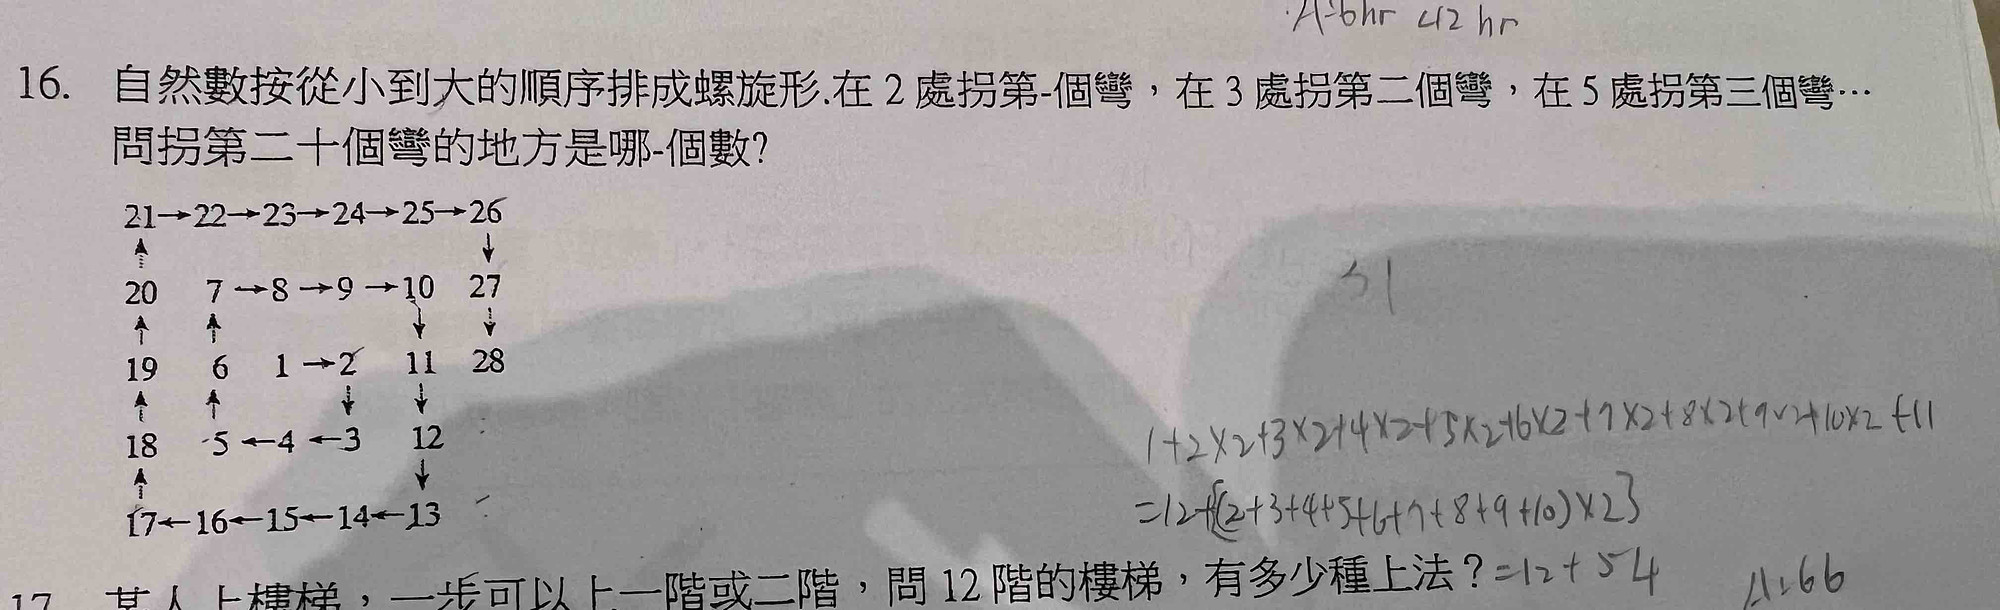 A:6hr <12 hr
16. 自然數按從小到大的順序排成螺旋形.在 2 處拐第-個彎，在 3 處拐第二個彎，在 5 處拐第三個彎…
問拐第二十個彎的地方是哪-個數?
21→22→23→24→25→26
20 7→8→9→10 27
19 6 1→2 11 28
18 5←4←3 12
17←16←15←14←13
1+2×2+3×2+4×2+5×2+6×2+7×2+8×2+9×2+10×2+11
=12+{(2+3+4+5+6+7+8+9+10)×2}
=12+54
A:66
17. 某人上樓梯，一步可以上一階或二階，問 12 階的樓梯，有多少種上法？